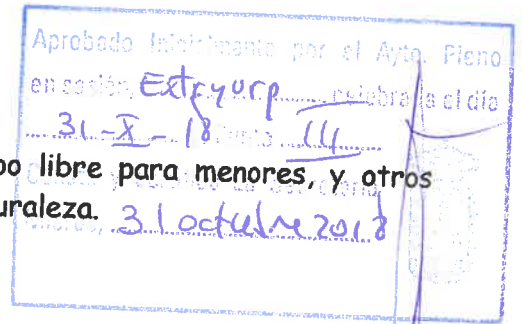 Aprobado Inicialmente por el Ayto. Pleno
en sesión, Extraurp celebrada el día
31 - X - 18 punto III
po libre para menores, y otros
uraleza. 31 octubre 2018